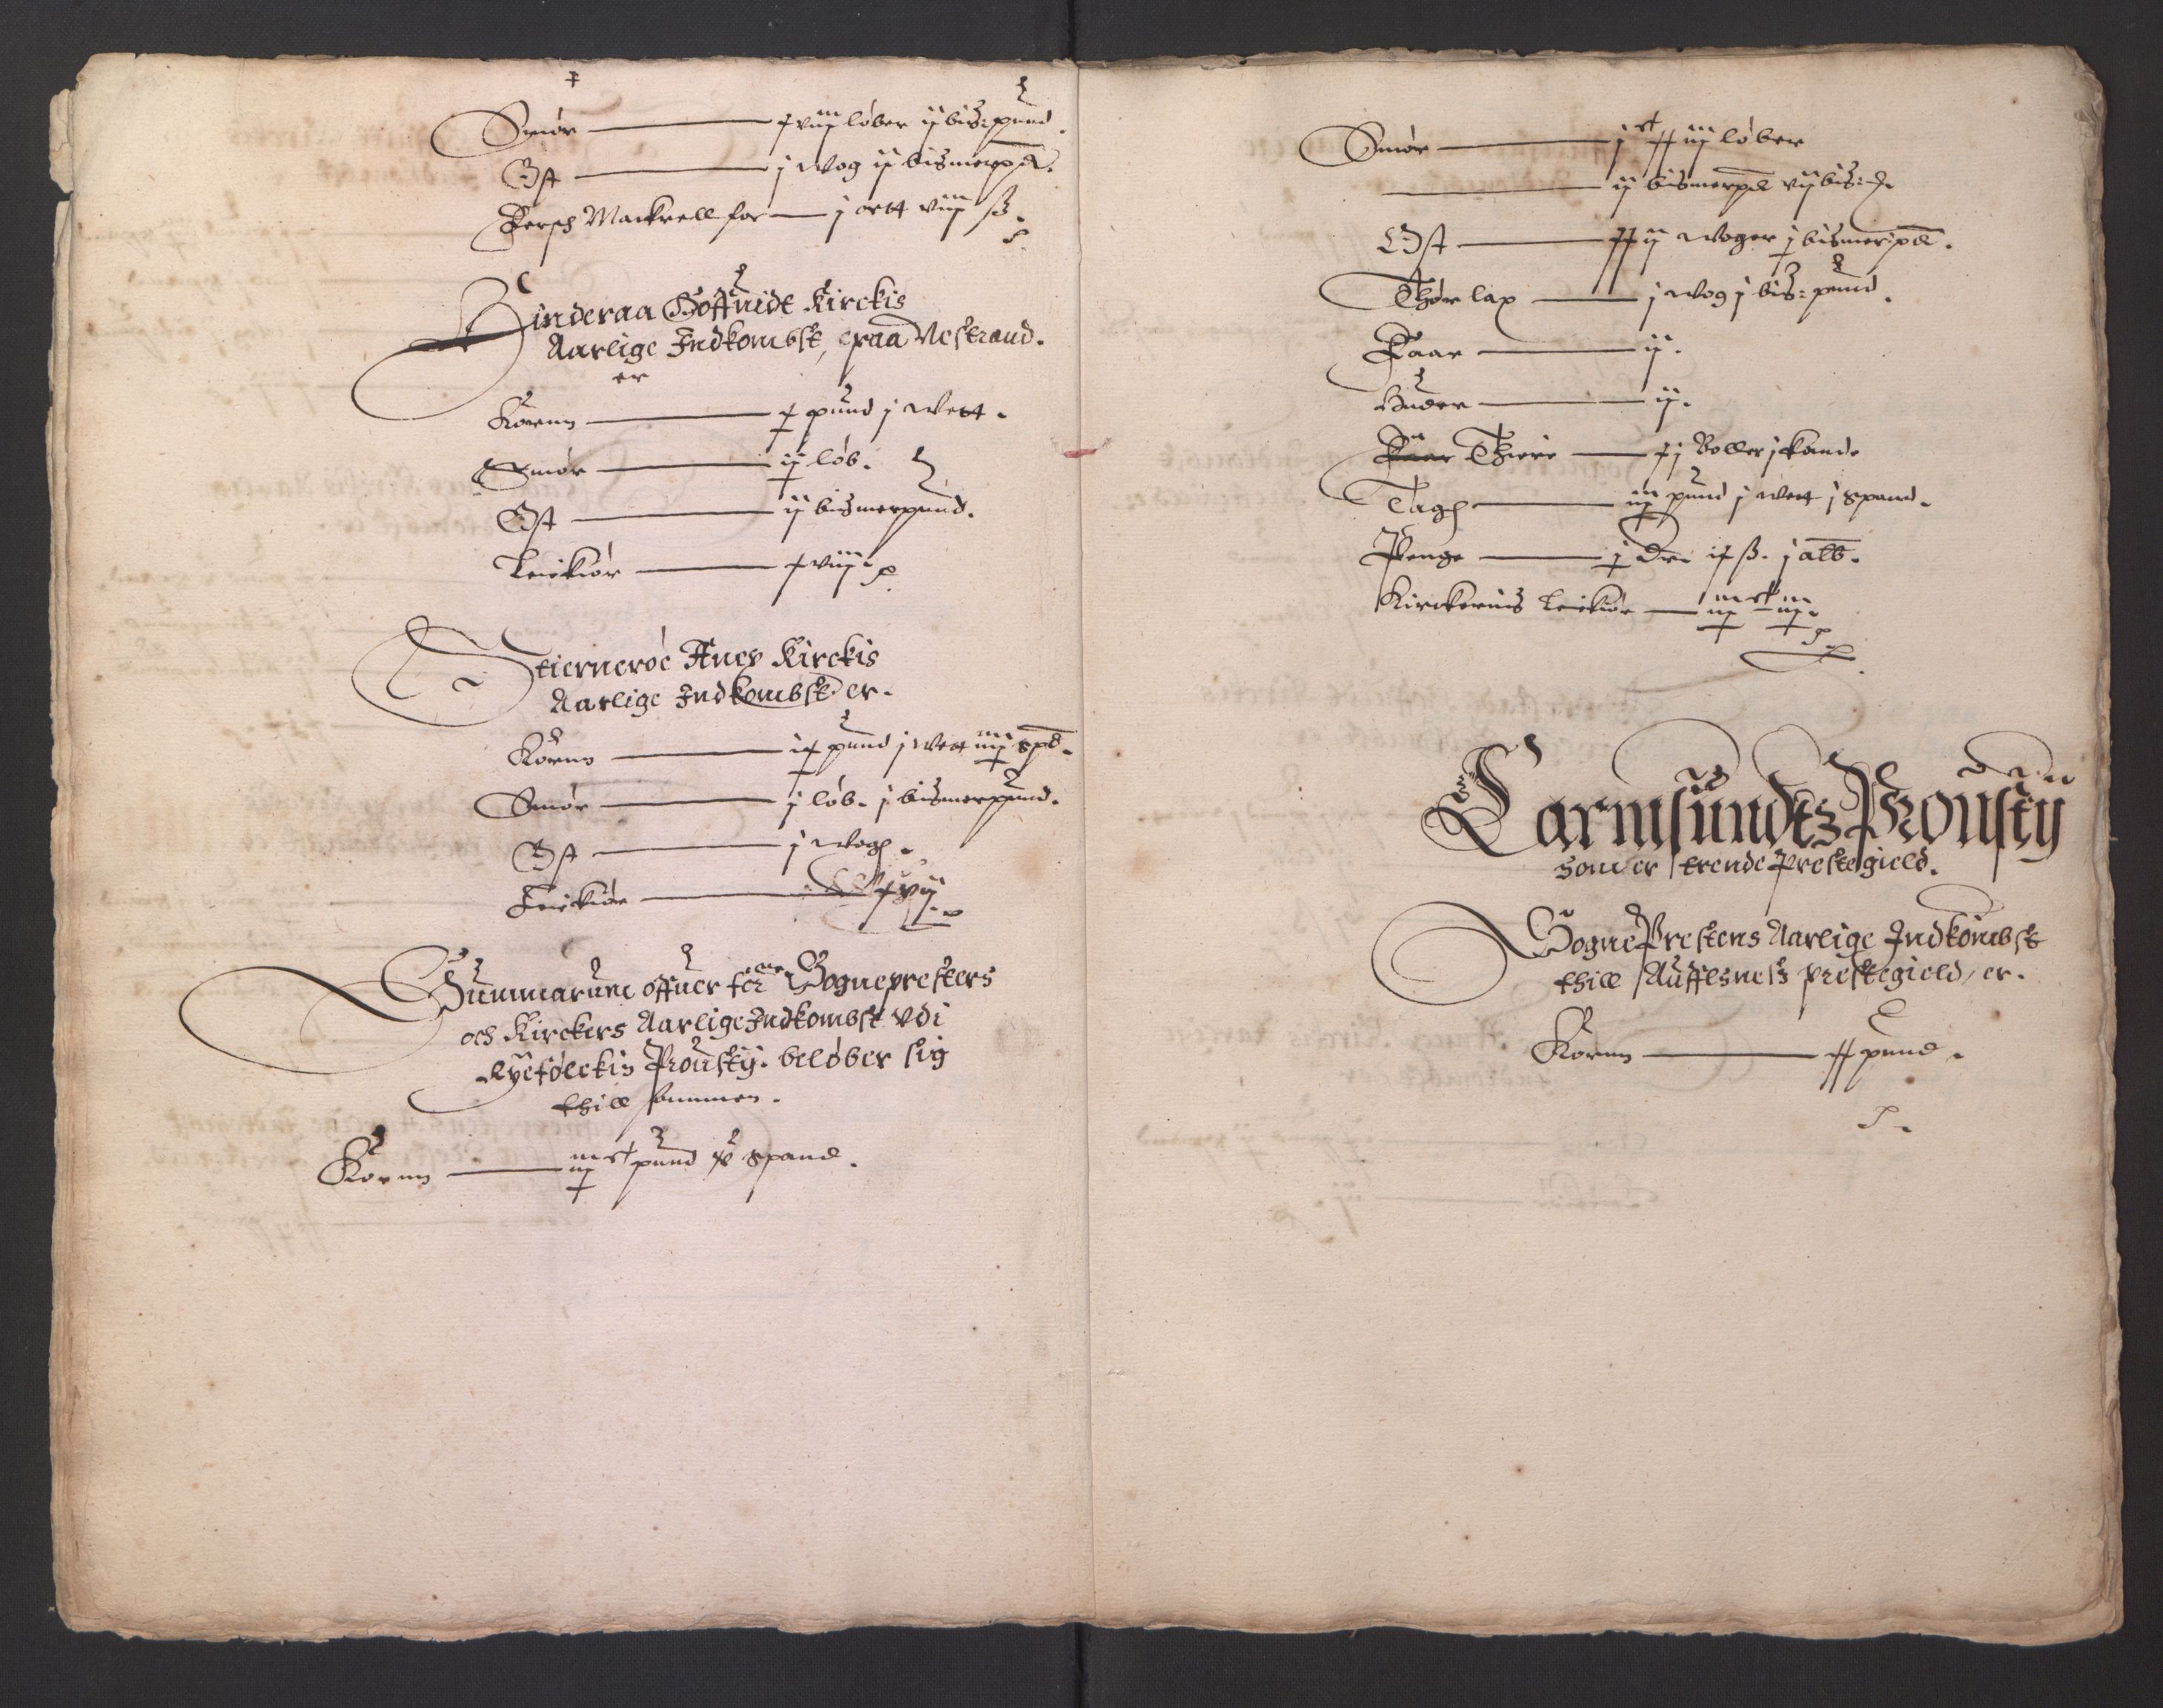 Smør — xviij løber ij bis: pund.
Ost — j wog ij bismerpd.
Fersch Mackrell for — j ortt viij ß.
Hinderaa Hoffuidt Kirckis
Aarlige Indkombst, paa Nestrand.
er
Kornn — x pund j wett.
Smør — ij løb.
Ost — ij bismerpund.
Leiekiør — xviij.
Stierneröe Anex Kirckis
Aarlige Indkombst er.
Kornn — pund j wett iiij spd.
Smør — j løb. j bismerpund.
Ost — j wogh.
Leiekiør — xvij.
Summarum offuer Sognepresters
och Kirckers Aarlige Indkombst vdi
Ryefølckis Prousty. beløber sig
thill sammen.
Kornn — pund spand.
Smør — løber
— ij bismerpd vij bis:
Ost — xxij woger j bismerpd.
Thør lax — j wog j bis: pund.
Faar — ij.
Huder — ij.
Thiere — xj Boller j kande
Tagh — iiij pund j wett j spand.
Penge — Dr. ß. j alb.
Kirckernis leiekiør —
Carmsundtz Prousty
som er trende Prestegield.
SognePrestens Aarlige Indkombst
thill Auffesnesß prestegield, er.
Kornn — xx pund.